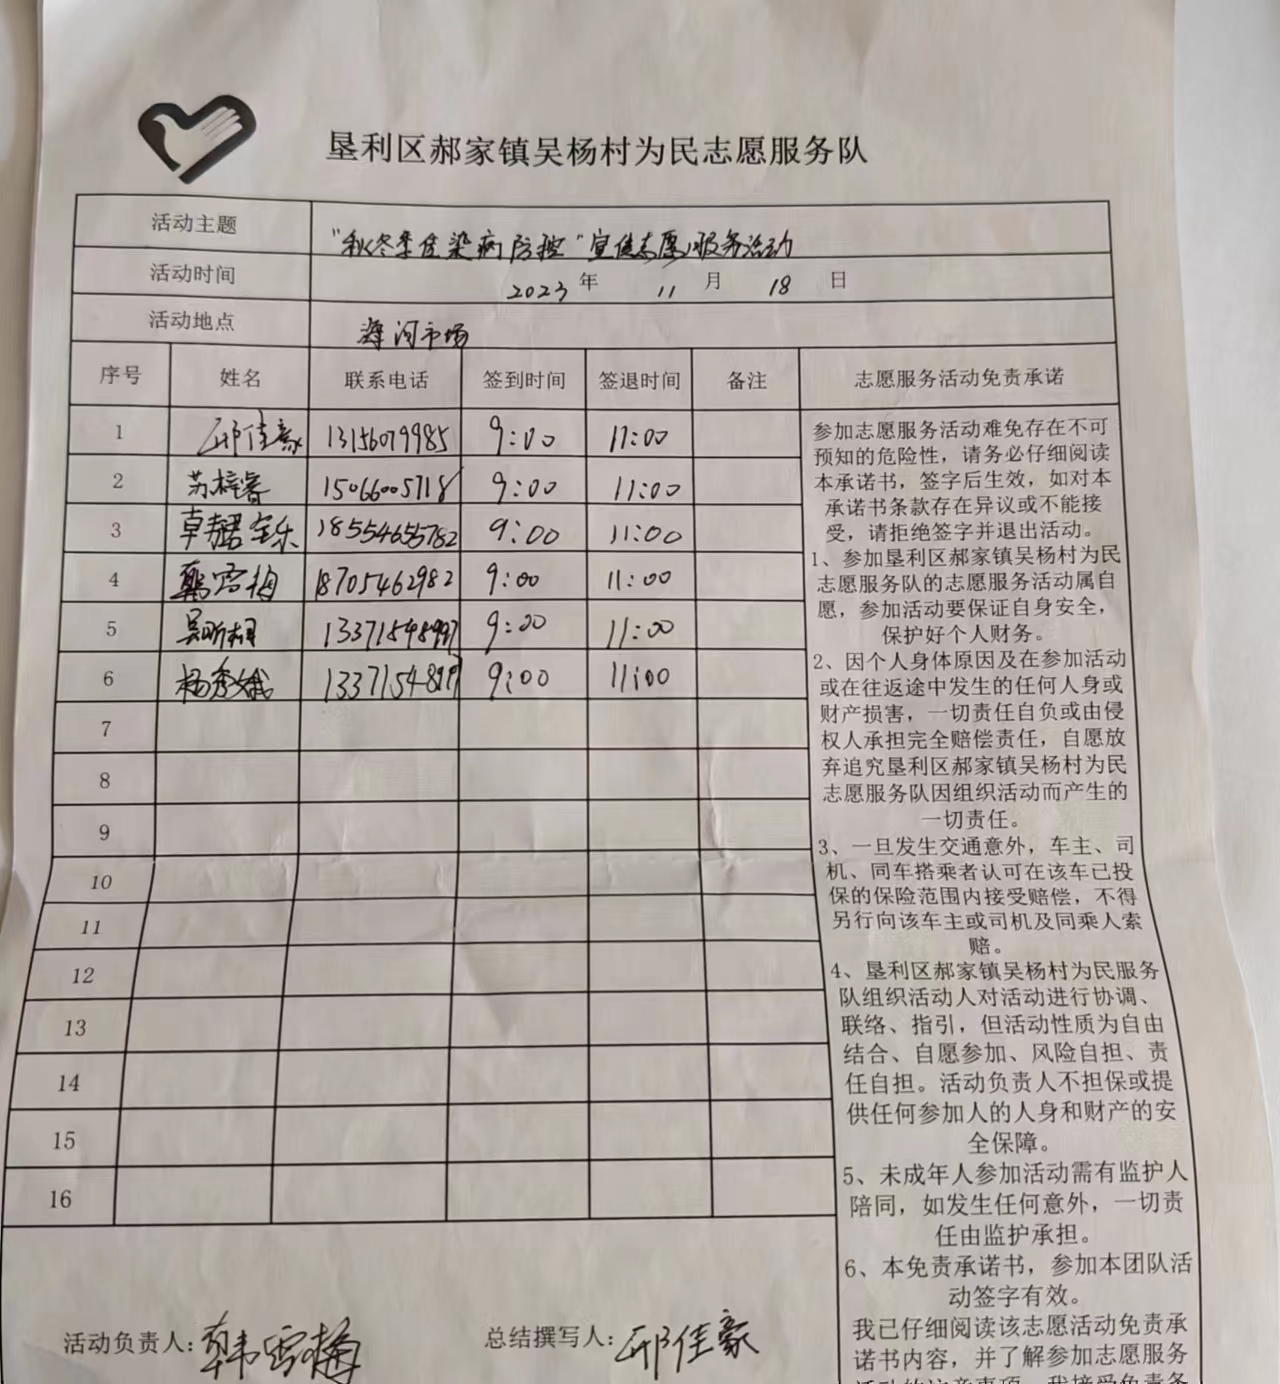 垦利区郝家镇吴杨村为民志愿服务队
活动主题
"秋冬季传染病防控"宣传志愿服务活动
活动时间
2023 年 11 月 18 日
活动地点
海河市场
序号 姓名 联系电话 签到时间 签退时间 备注 志愿服务活动免责承诺
1 邢佳豪 13156079985 9:00 11:00
2 苏梓睿 15066005718 9:00 11:00
3 卓 18554655782 9:00 11:00
4 韩雪梅 18705462982 9:00 11:00
5 吴昕桐 9:00 11:00
6 杨秀娥 9:00 11:00
7
8
9
10
11
12
13
14
15
16
参加志愿服务活动难免存在不可
预知的危险性，请务必仔细阅读
本承诺书，签字后生效，如对本
承诺书条款存在异议或不能接
受，请拒绝签字并退出活动。
1、参加垦利区郝家镇吴杨村为民
志愿服务队的志愿服务活动属自
愿，参加活动要保证自身安全，
保护好个人财务。
2、因个人身体原因及在参加活动
或在往返途中发生的任何人身或
财产损害，一切责任自负或由侵
权人承担完全赔偿责任，自愿放
弃追究垦利区郝家镇吴杨村为民
志愿服务队因组织活动而产生的
一切责任。
3、一旦发生交通意外，车主、司
机、同车搭乘者认可在该车已投
保的保险范围内接受赔偿，不得
另行向该车主或司机及同乘人索
赔。
4、垦利区郝家镇吴杨村为民服务
队组织活动人对活动进行协调、
联络、指引，但活动性质为自由
结合、自愿参加、风险自担、责
任自担。活动负责人不担保或提
供任何参加人的人身和财产的安
全保障。
5、未成年人参加活动需有监护人
陪同，如发生任何意外，一切责
任由监护承担。
6、本免责承诺书，参加本团队活
动签字有效。
我已仔细阅读该志愿活动免责承
诺书内容，并了解参加志愿服务
活动负责人:韩雪梅 总结撰写人:邢佳豪